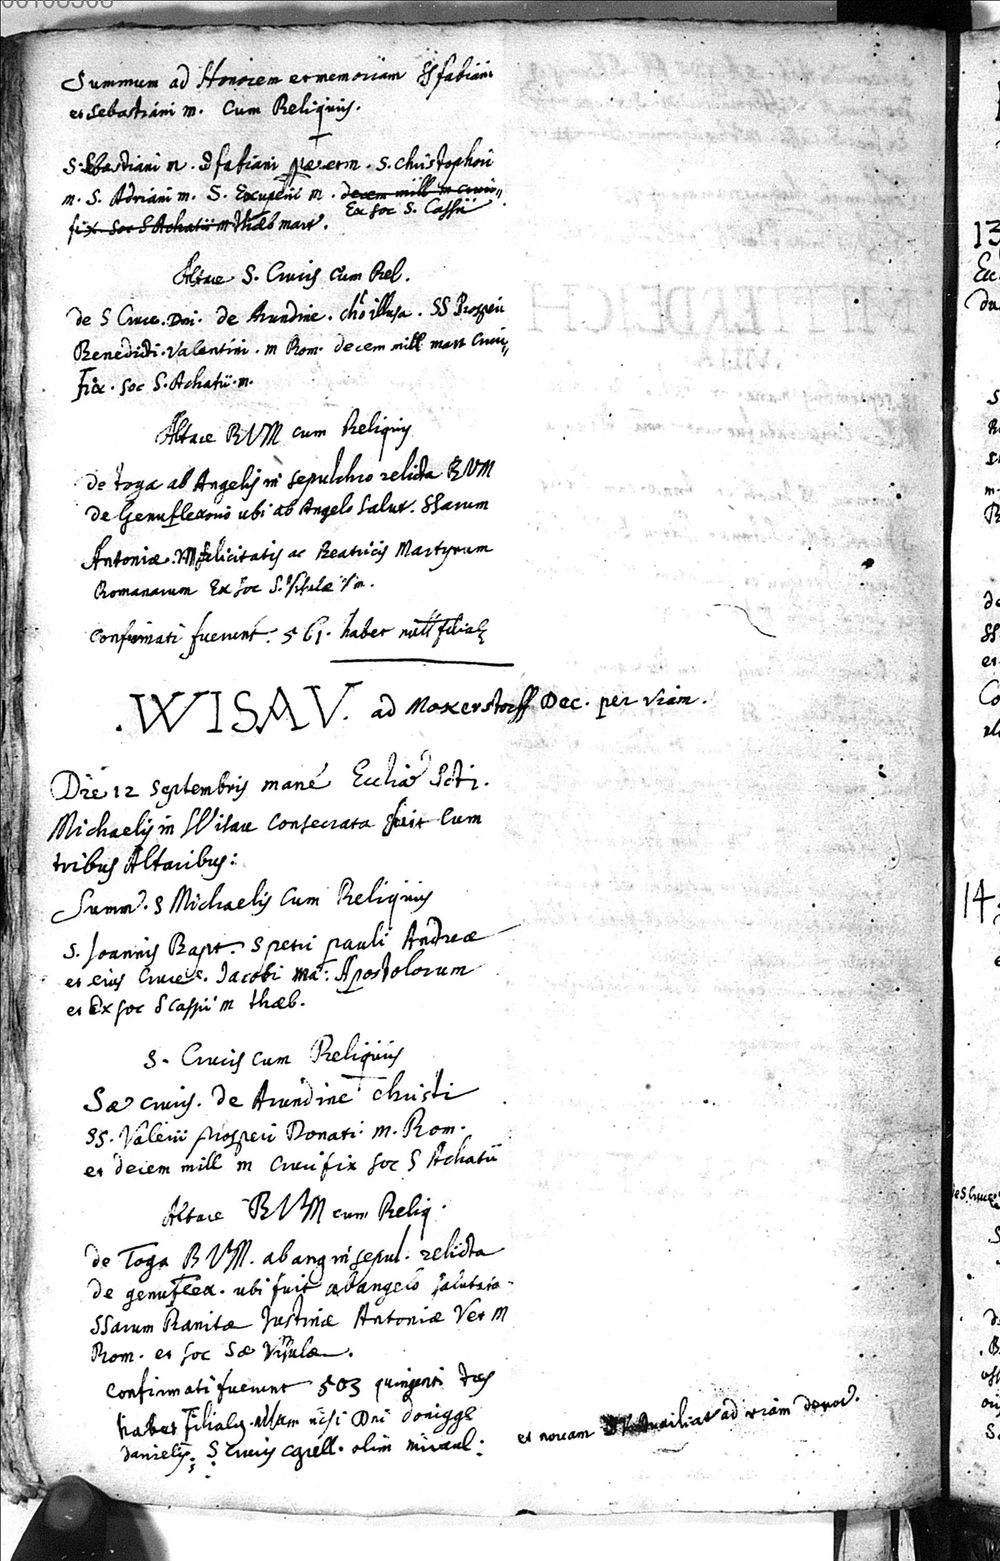 Summum ad Honorem et memoriam SS fabiani
et Sebastiani m. Cum Reliquiis.
S. Sebastiani m. S fabiani papæ et m. S. Christophori
m. S. Adriani m. S. Exuperii m. decem mill m cruci-
Ex soc S. Cassii
fix. soc S Achatii m Thæb mart.
Altare S. Crucis Cum Rel.
de S Cruce. Dni. de Arundine. chō illusa. SS Prosperi
Benedicti. Valentini. m Rom. decem mill mart Cruci-
fix. soc S. Achatii. m.
Altare BVM cum Reliquiis
de toga ab Angelis in sepulchro relicta BVM
de Genuflexorio ubi ab Angelo Salut. SSarum
Antoniæ. Felicitatis ac Beatricis Martyrum
Romanarum Ex soc S. Ursulæ v m.
Confirmati fuerunt. 561. habet null filiales
. WISAV. ad Moxerstorff Dec. per viam.
Die 12 Septembris mane Ecclia Scti.
Michaelis in Wisau Consecrata fuit Cum
tribus Altaribus:
Summ. S Michaelis Cum Reliquiis
S. Joannis Bapt. S petri pauli Andreæ
et eius Cruce. Jacobi ma: Apostolorum
et Ex soc S Cassii m thæb.
S. Crucis cum Reliquiis
Sæ crucis. de Arundine christi
SS. Valerii prosperi Donati. m. Rom.
et decem mill m Crucifix soc S Achatii
Altare BVM cum Reliq.
de Toga BVM. ab ang in sepul. relicta
de genuflex. ubi fuit ab angelo salutata.
SSarum Justinæ Antoniæ V et M
Rom. et soc Sæ Ursulæ.
Confirmati fuerunt 503 quingenti tres
habet filiales nisi Dni
danielis; S Crucis capell. olim miracul:
et novam ad viam
13
14